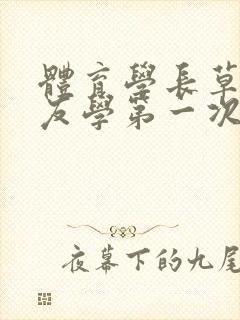 體育學長草
友學第一次
夜幕下的九尾